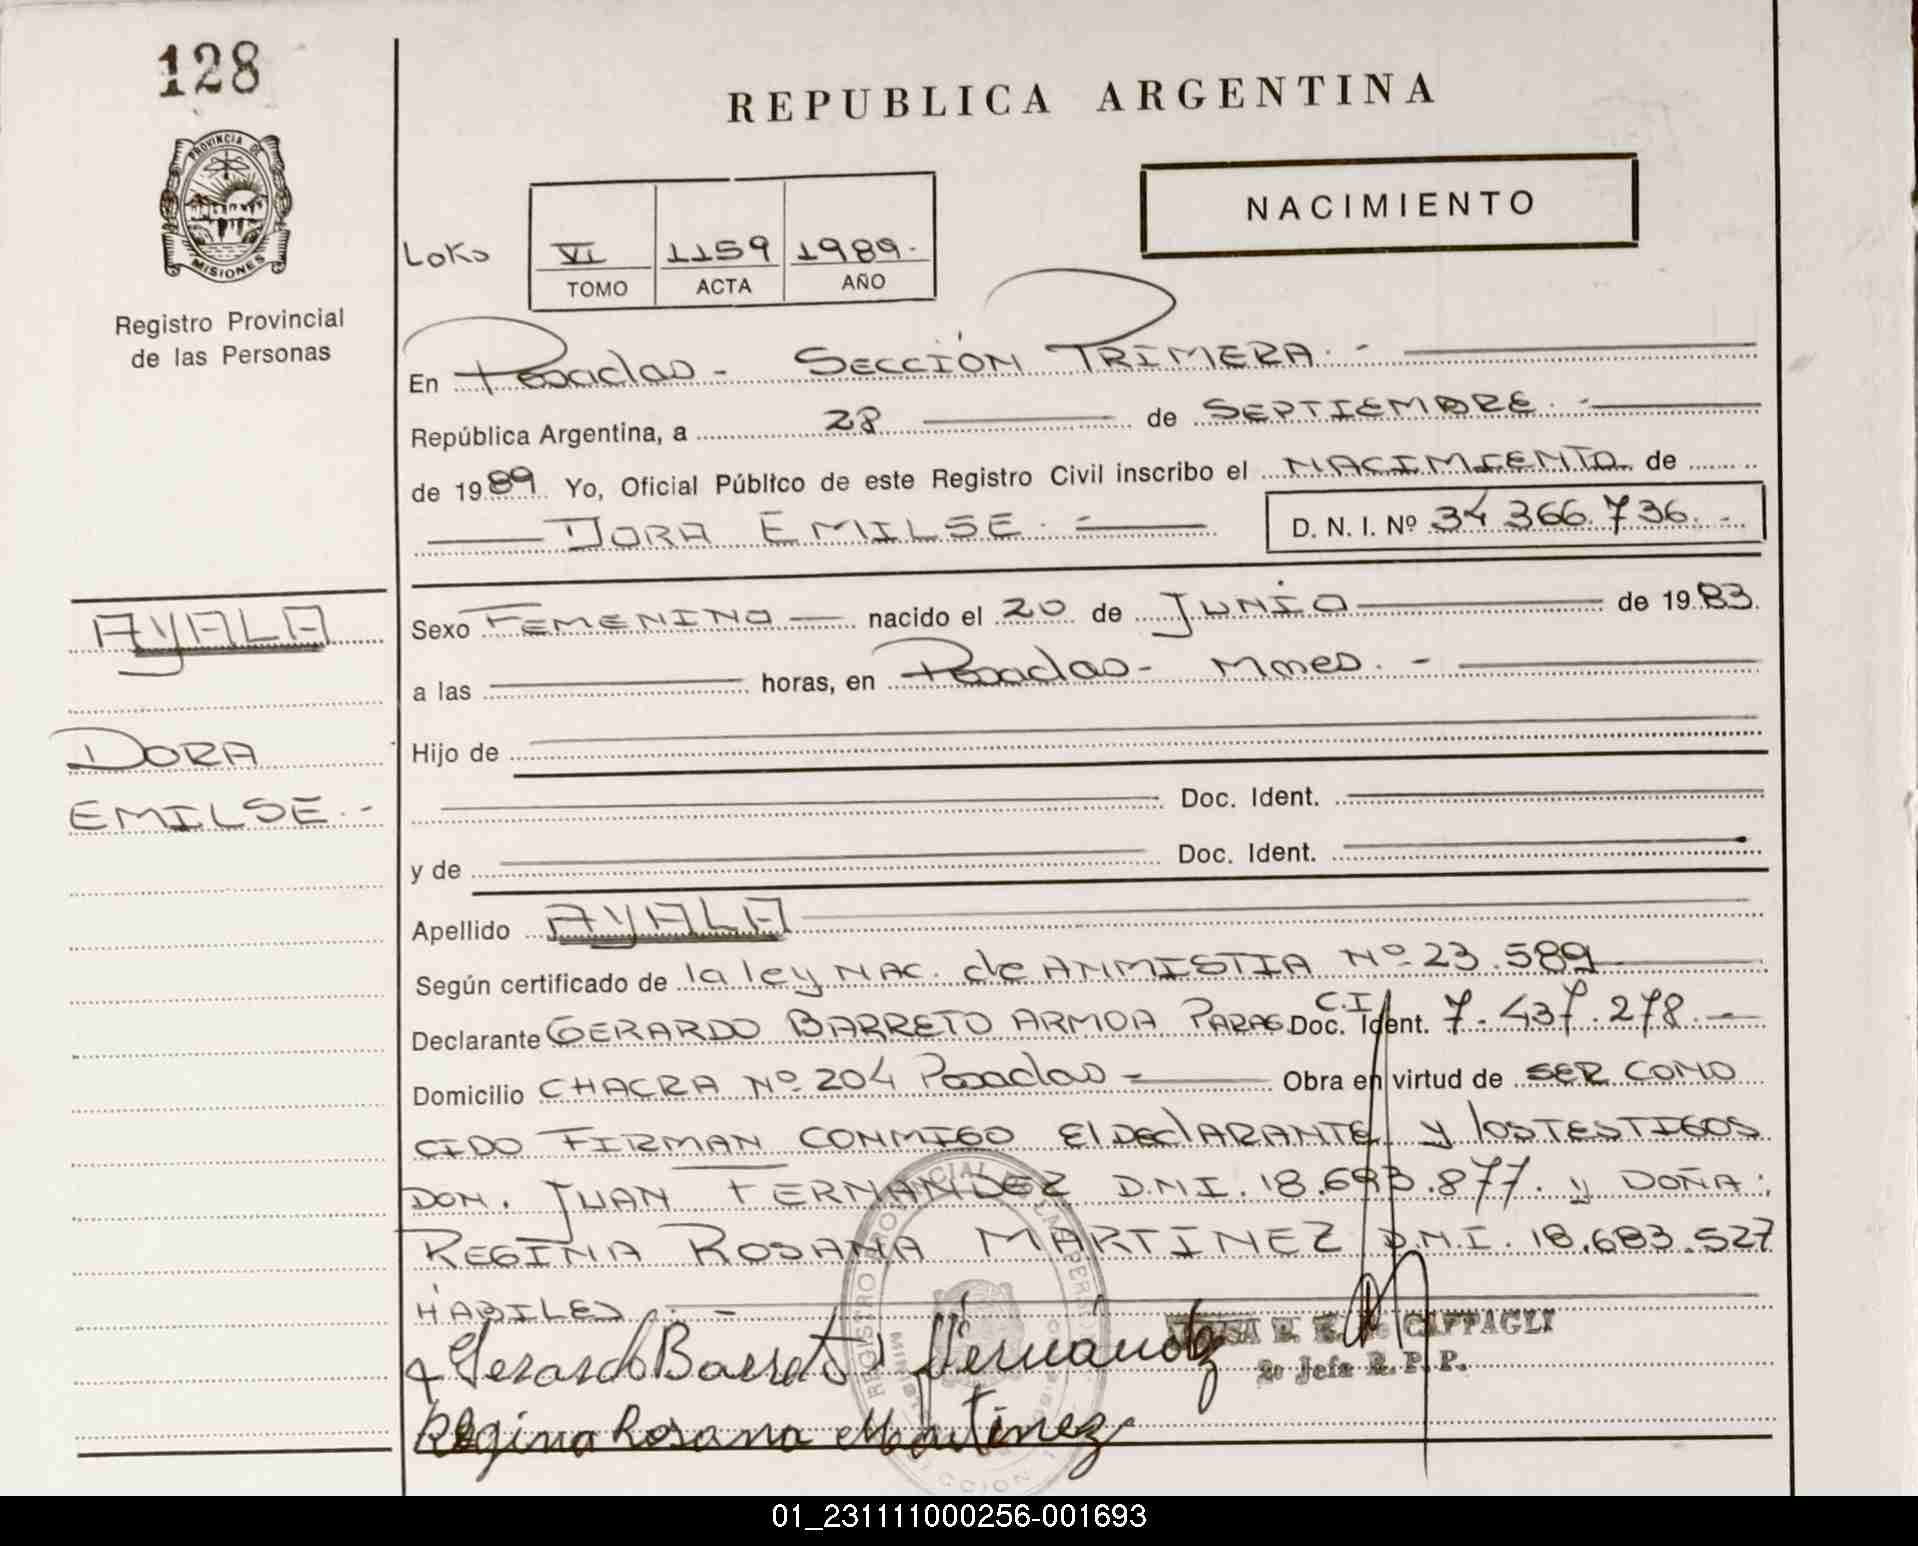 128
REPUBLICA ARGENTINA
PROVINCIA DE
MISIONES
NACIMIENTO
VI 1159 1989.
TOMO ACTA AÑO
Registro Provincial
de las Personas
En Posadas - SECCIÓN PRIMERA. -
República Argentina, a 28 de SEPTIEMBRE. -
de 1989 Yo, Oficial Público de este Registro Civil inscribo el NACIMIENTO de
DORA EMILSE. - D. N. I. Nº 34 366.736. -
AYALA
DORA
EMILSE. -
Sexo FEMENINO nacido el 20 de JUNIO de 1983.
a las horas, en Posadas - Mnes. -
Hijo de
Doc. Ident.
y de Doc. Ident.
Apellido AYALA
Según certificado de la ley NAC. de ANMISTIA Nº 23.589
Declarante GERARDO BARRETO ARMOA PARAG. C.I. Doc. Ident. 7.437.278. -
Domicilio CHACRA Nº 204 Posadas - Obra en virtud de SER CONO
CIDO FIRMAN CONMIGO El DEClARANTE y los TESTIGOS
DON. JUAN FERNANDEZ D.N.I. 18.693.877. y DOÑA:
REGINA ROSANA MARTINEZ D.N.I. 18.683.527
HÁBILES. -
Gerardo Barreto
Regina Rosana Martinez
CAFFAGLI
2º Jefa R. P. P.
01_231111000256-001693